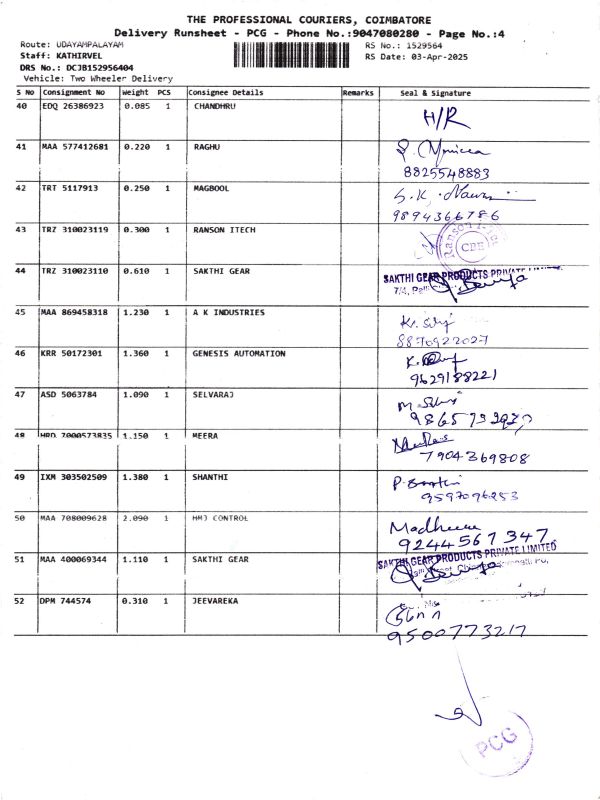 THE PROFESSIONAL COURIERS, COIMBATORE
Delivery Runsheet - PCG - Phone No.:9047080280 - Page No.:4
Route: UDAYAMPALAYAM RS No.: 1529564
Staff: KATHIRVEL RS Date: 03-Apr-2025
DRS No.: DCJB152956404
Vehicle: Two Wheeler Delivery
S No Consignment No Weight PCS Consignee Details Remarks Seal & Signature
40 EDQ 26386923 0.085 1 CHANDHRU
H/R
41 MAA 577412681 0.220 1 RAGHU
8825548883
42 TRT 5117913 0.250 1 MAGBOOL
9894366786
43 TRZ 310023119 0.300 1 RANSON ITECH
CBE
44 TRZ 310023110 0.610 1 SAKTHI GEAR
SAKTHI GEAR PRODUCTS PRIVATE
45 MAA 869458318 1.230 1 A K INDUSTRIES
8870922027
46 KRR 50172301 1.360 1 GENESIS AUTOMATION
9629188221
47 ASD 5063784 1.090 1 SELVARAJ
48 HRD 7000573835 1.150 1 MEERA
7904369808
49 IXM 303502509 1.380 1 SHANTHI
9597096253
50 MAA 708009628 2.090 1 HMJ CONTROL
9244567347
51 MAA 400069344 1.110 1 SAKTHI GEAR
SAKTHI GEAR PRODUCTS PRIVATE LIMITED
52 DPM 744574 0.310 1 JEEVAREKA
9500773217
PCG